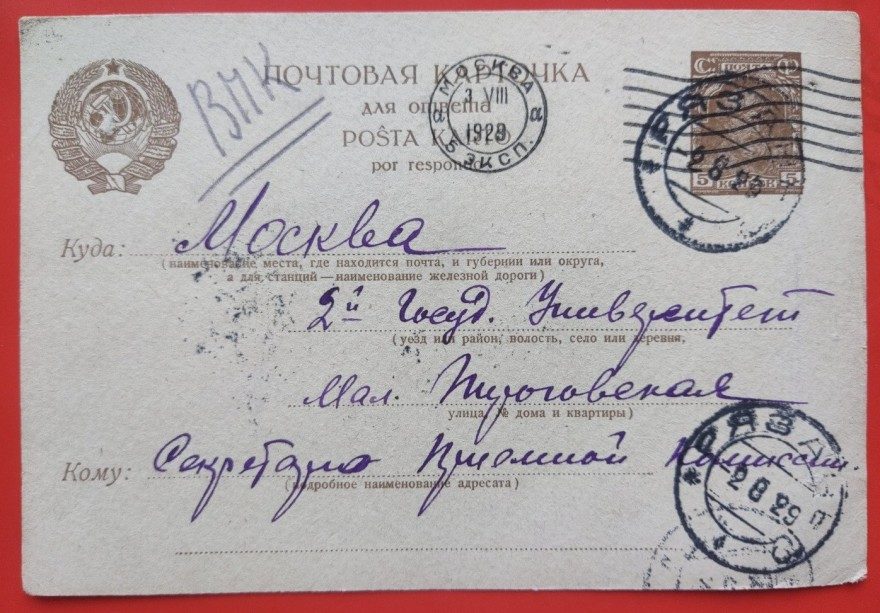 ВПК
ПОЧТОВАЯ КАРТОЧКА
для ответа
POŜTA KARTO
por respondo
МОСКВА
3 VIII
1929
5 ЭКСП.
ПОЧТА
5 КОПЕЕК 5
РЯЗАНЬ
2 8 29
Куда: Москва
(наименование места, где находится почта, и губернии или округа,
а для станций—наименование железной дороги)
2й Госуд. Университет
(уезд или район, волость, село или деревня,
Мал. Пироговская
улица, № дома и квартиры)
Кому: Секретарю Приемной Комиссии
(подробное наименование адресата)
РЯЗАНЬ
2 8 29